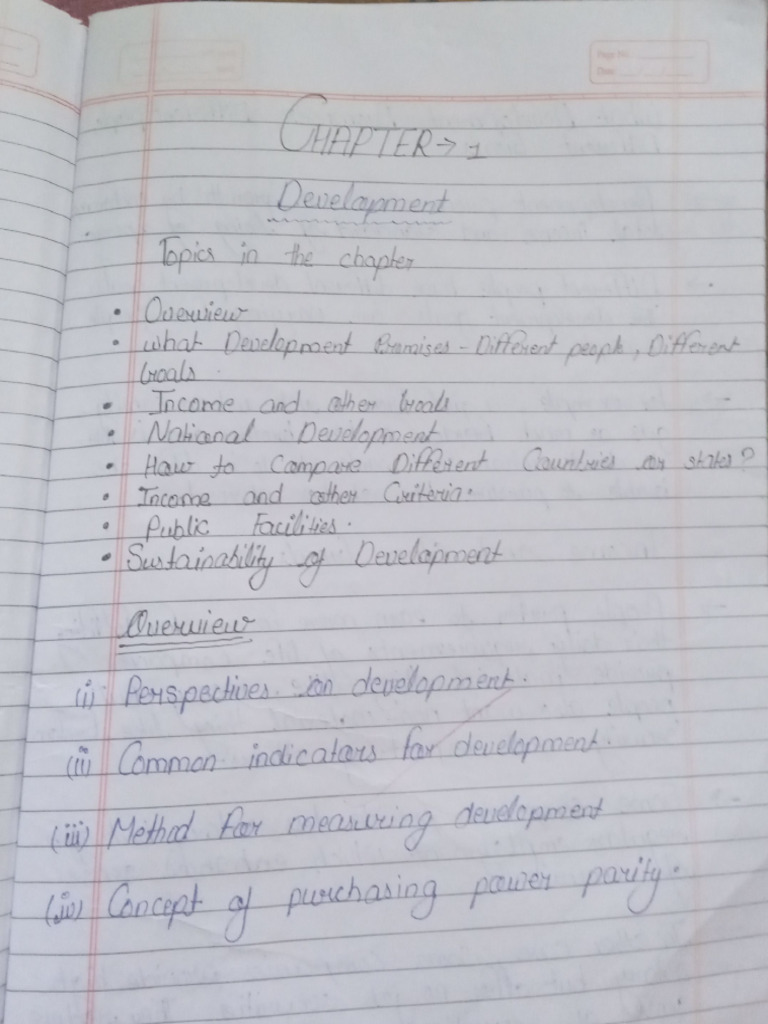 CHAPTER → 1
Development
Topics in the chapter
• Overview
• What Development Promises - Different people, Different
Goals.
• Income and other Goals
• National Development
• How to Compare Different Countries or states?
• Income and other Criteria.
• Public Facilities.
• Sustainability of Development
Overview
(i) Perspectives on development.
(ii) Common indicators for development.
(iii) Method for measuring development
(iv) Concept of purchasing power parity.